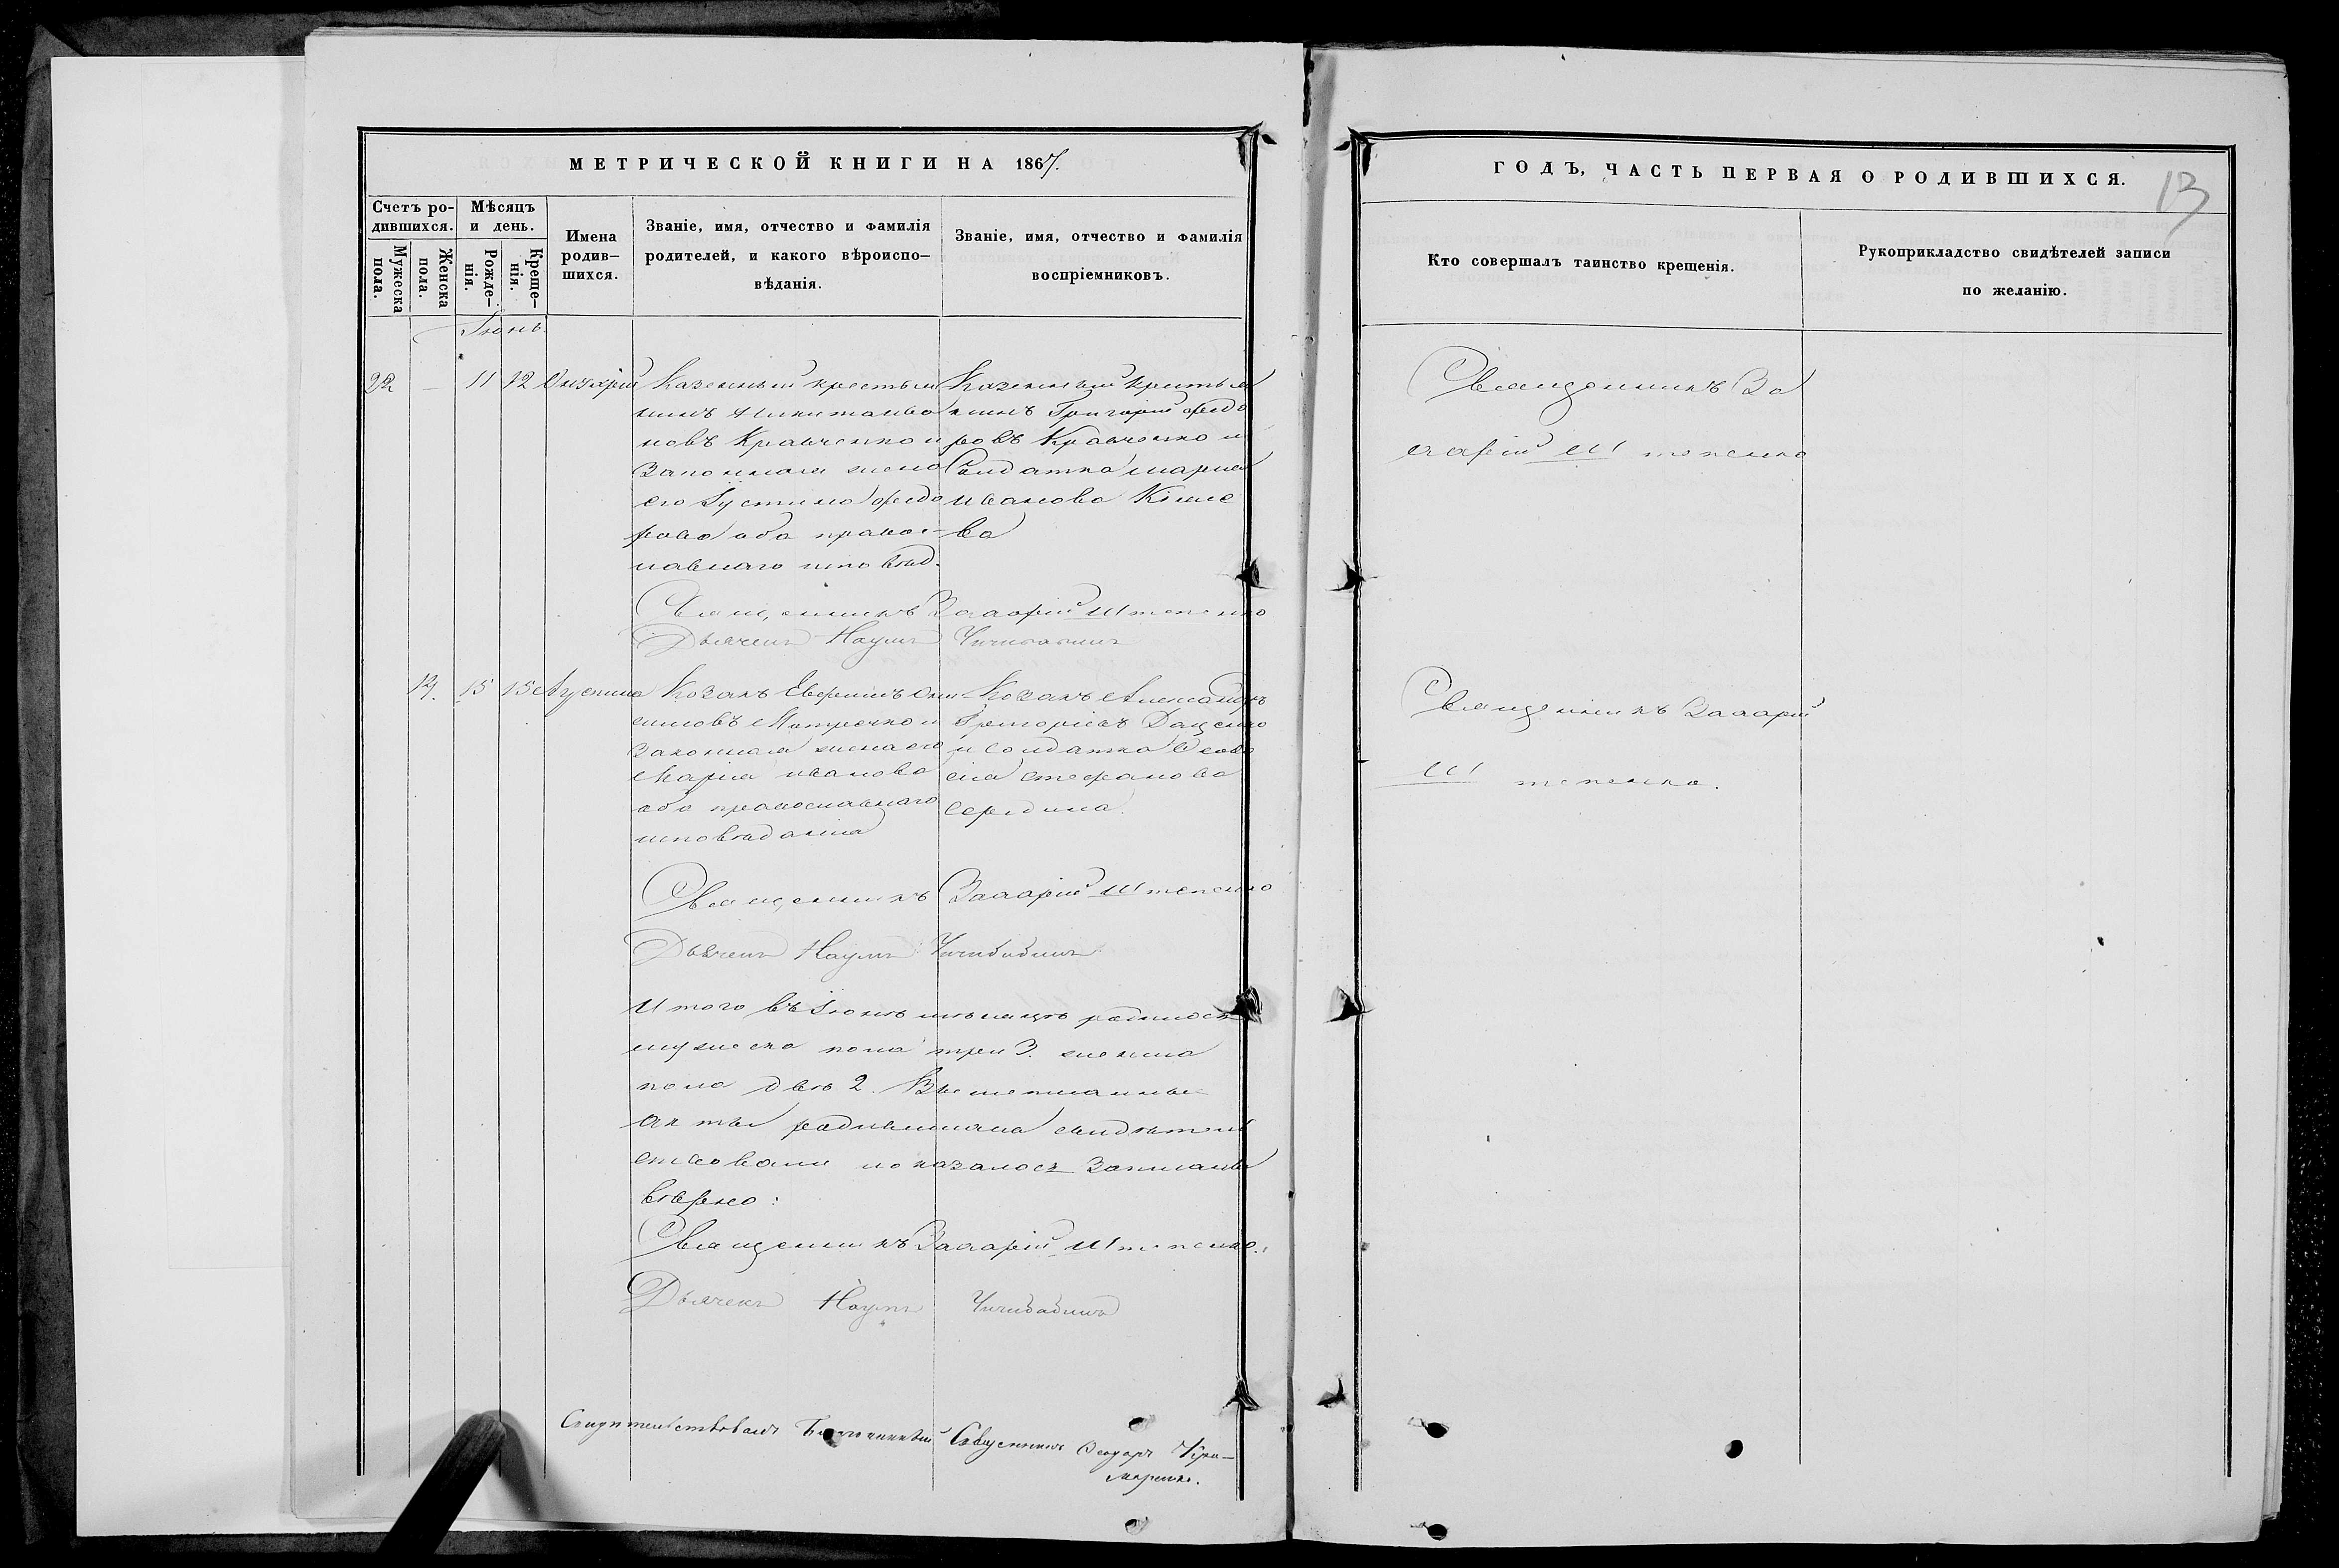 МЕТРИЧЕСКОЙ КНИГИ НА 1867.
Счетъ ро-
дившихся.
Мѣсяцъ
и день.
Мужеска
пола.
Женска
пола.
Рожде-
нія.
Креще-
нія.
Имена
родив-
шихся.
Званіе, имя, отчество и фамилія
родителей, и какого вѣроиспо-
вѣданія.
Званіе, имя, отчество и фамилія
воспріемниковъ.
Іюнь
22 — 11 12
Казенный крестья
нинъ
новъ Кравченко и
Законная жена
его Іустина Федо
рова оба правос-
лавнаго исповѣд.
Казенный крестья
нинъ Григорій Федо
ровъ Кравченко и
Солдатка Марія
Иванова
ва
Священникъ Захарій Штепенко
Дьячекъ Наумъ
12. 15 15
Козакъ Евфимъ Они
симовъ и
Законная жена его
Марія Иванова
оба православнаго
исповѣданія
Козакъ Александръ
Григоріевъ Даценко
и солдатка
Стефанова
Середина.
Священникъ Захарій Штепенко
Дьячекъ Наумъ Чичибабинъ
Итого въ Іюнѣ мѣсяцѣ родилось
мужеска пола три 3. женска
пола двѣ 2.
акты родившихся свидѣтель
ствовали показалось Записаны
вѣрно:
Священникъ Захарій Штепенко.
Дьячекъ Наумъ Чичибабинъ
Свидѣтельствовалъ Благочинный Священникъ Феодоръ
ГОДЪ, ЧАСТЬ ПЕРВАЯ О РОДИВШИХСЯ.
13
Кто совершалъ таинство крещенія.
Рукоприкладство свидѣтелей записи
по желанію.
Священникъ За
харій Штепенко
Священникъ Захарій
Штепенко.